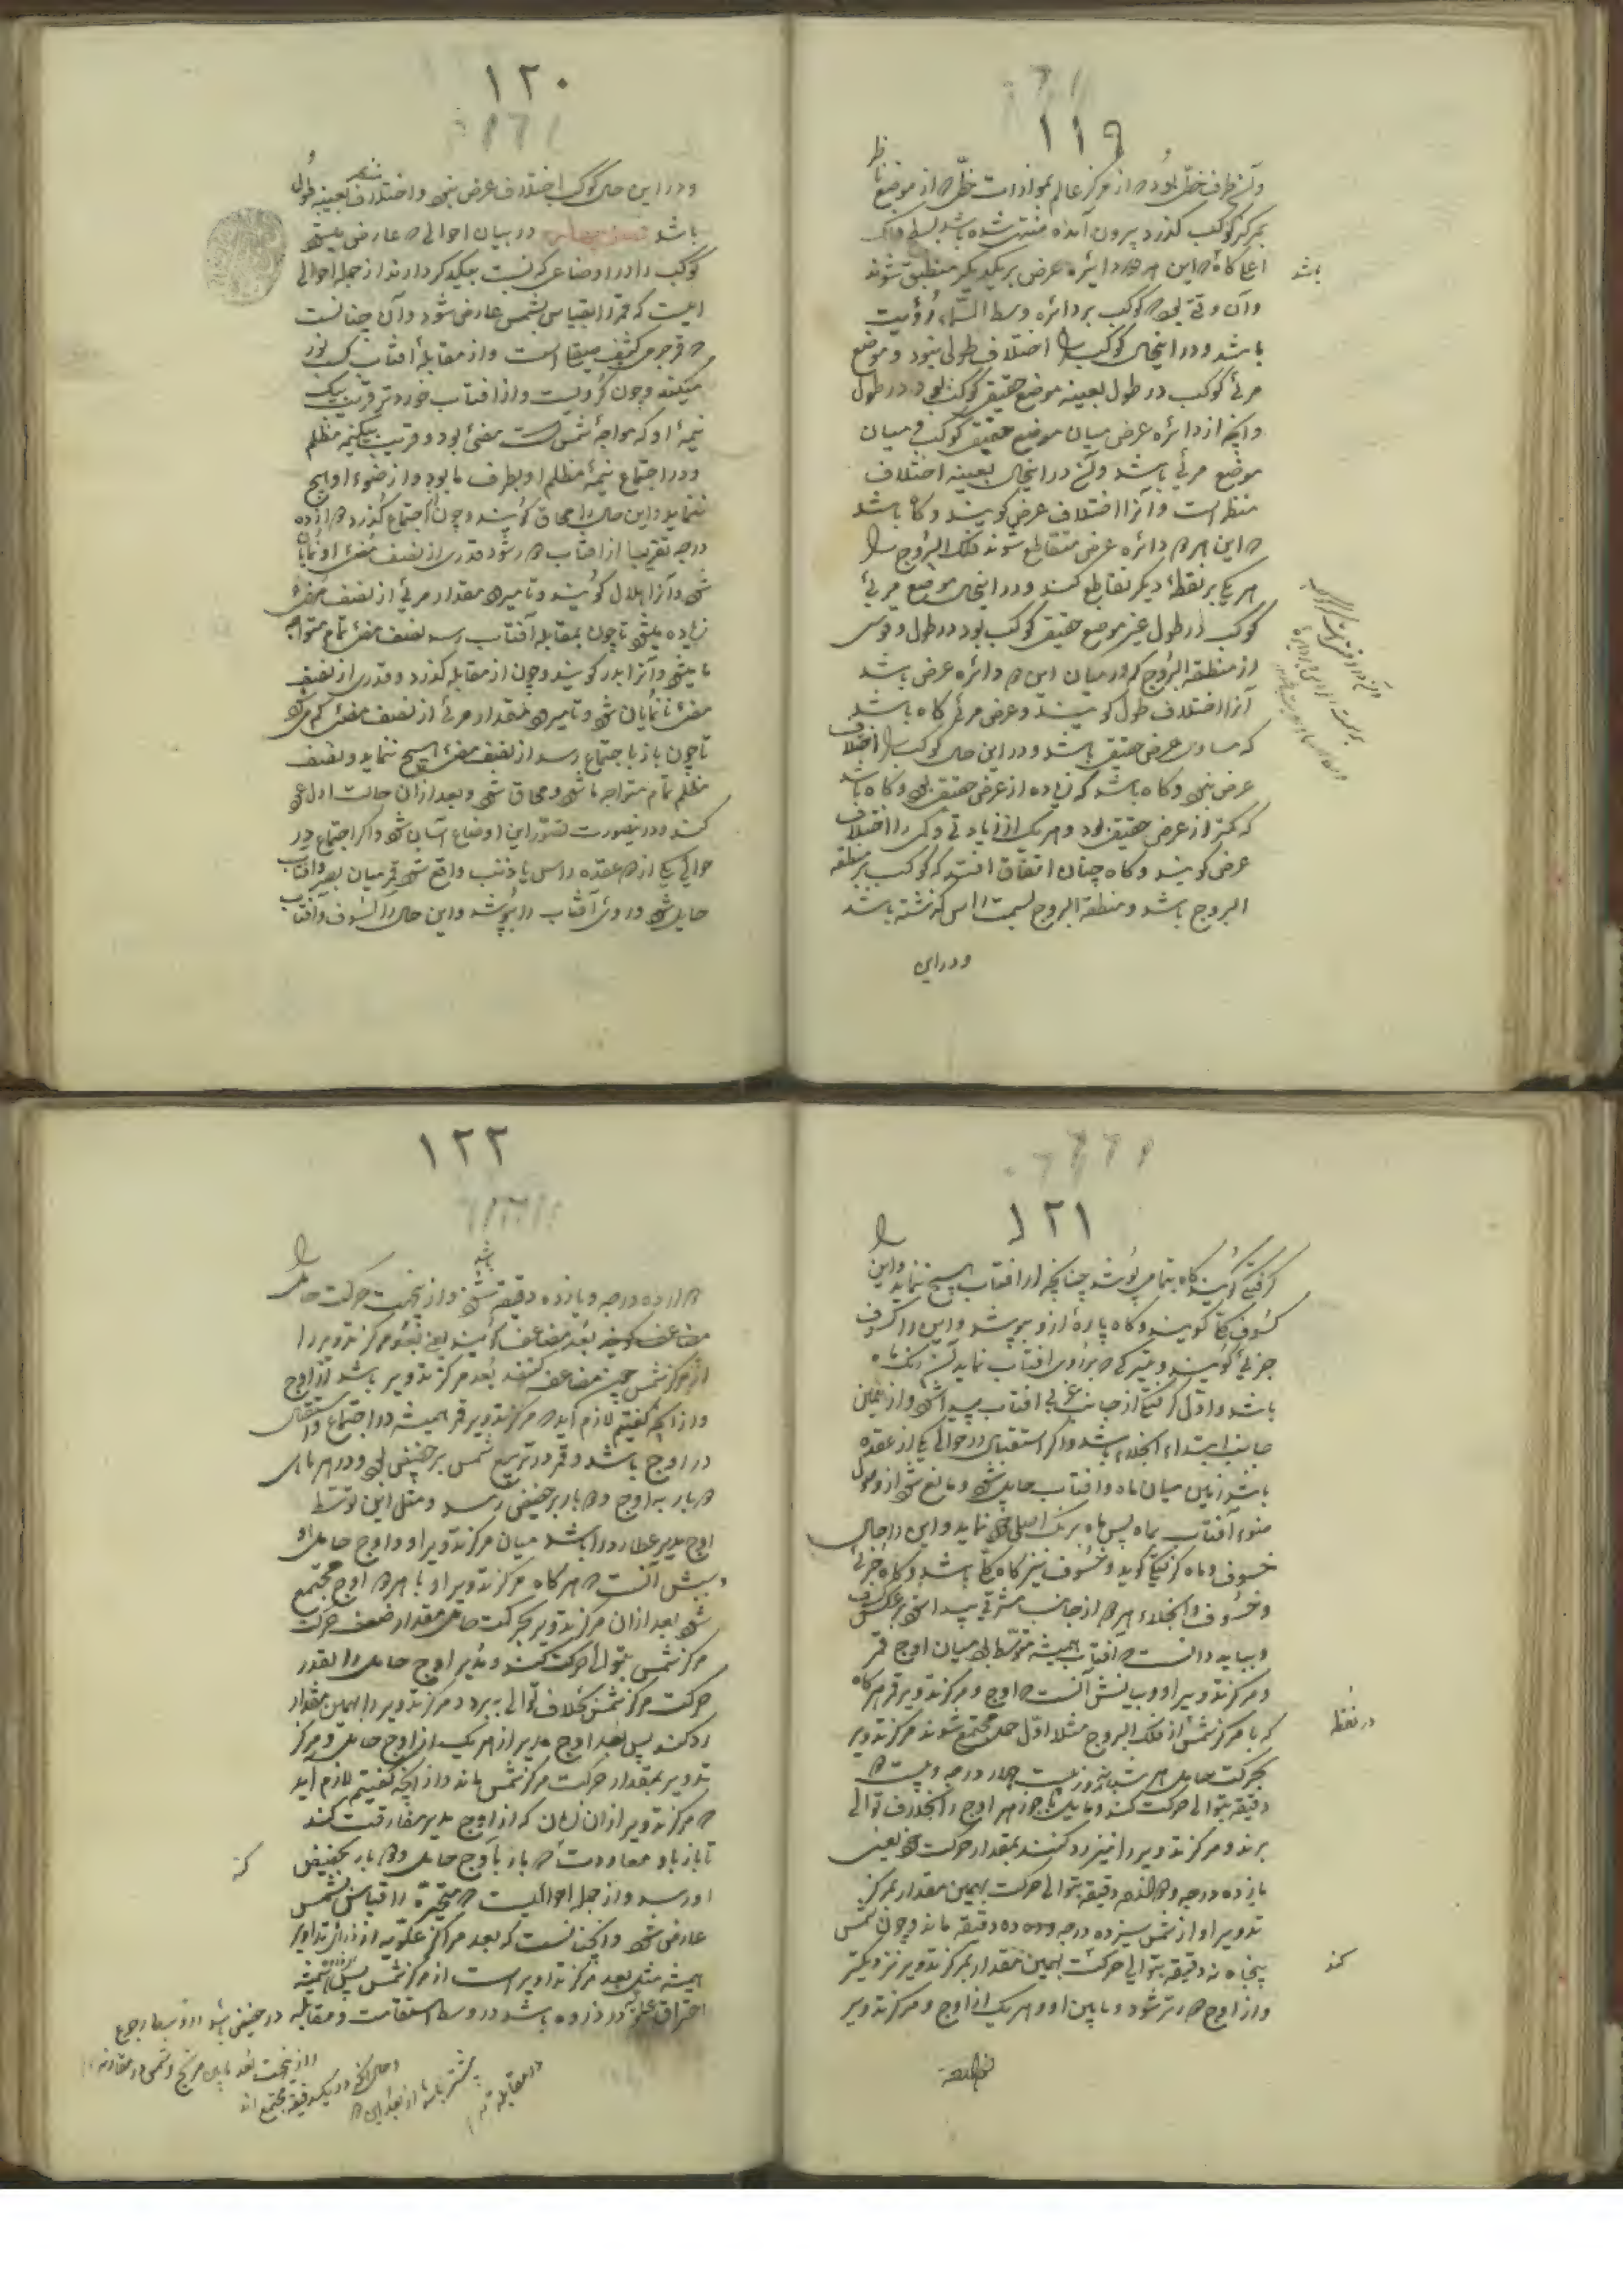 ١١٩
وآن طرف خطی بود که از مرکز عالم بموازات خطی که از موضع ناظر
بمرکز کوکب گذرد بیرون آمده منتهی شده باشد بسطح فلک
اعلی گاه این هر دو دائره عرض بر یکدیگر منطبق شوند
وآن وقتی بود که کوکب بر دائره وسط السماء رؤیت
باشد ودر اینحال کوکب را اختلاف طولی نبود وموضع
مرئی کوکب در طول بعینه موضع حقیقی کوکب بود در طول
وآنچه از دائره عرض میان موضع حقیقی کوکب و میان
موضع مرئی باشد در اینحال بعینه اختلاف
منظر است وآنرا اختلاف عرض گویند وگاه باشد
که این هر دو دائره عرض متقاطع شوند فلک البروج را
هر یکی بر نقطۀ دیگر تقاطع کنند ودر اینحال موضع مرئی
کوکب در طول غیر موضع حقیقی کوکب بود در طول وقوسی
از منطقة البروج که در میان این دو دائره عرض باشد
آنرا اختلاف طول گویند وعرض مرئی گاه باشد
که مساوی عرض حقیقی باشد ودر این حال کوکب را اختلاف
عرض نبود وگاه باشد که زیاده از عرض حقیقی بود وگاه باشد
که کمتر از عرض حقیقی بود وهر یک از زیادتی وکمی را اختلاف
عرض گویند وگاه چنان اتفاق افتد که کوکب بر منطقه
البروج باشد ومنطقة البروج بسمت راس گذشته باشد
ودر این
باشد
١٢٠
ودر این حال کوکب اختلاف عرض نبود واختلاف منظر بعینه طولی
باشد در بیان احوالی که عارض میشود
کوکب را در اوضاعی که نسبت بیکدیگر دارند از جمله احوالی
است که قمر را بقیاس بشمس عارض شود وآن چنانست
که قمر جرمی کثیف صیقل است واز مقابلۀ آفتاب کسب نور
میکند وچون کرویست واز آفتاب خوردتر قریب بیک
نیمۀ او که مواجۀ شمس است مضئ بود وقریب بیک نیمه مظلم
ودر اجتماع نیمۀ مظلم او بطرف ما بود واز ضوء او هیچ
ننماید واین حال را محاق گویند وچون از اجتماع گذرد دوازده
درجه تقریبا از آفتاب دور شود قدری از نصف مضئ او نمایان
شود وآنرا هلال گویند وتا میرود مقدار مرئی از نصف مضئ
زیاده میشود تا چون بمقابله آفتاب رسد نصف مضئ تمام متواجه
ما میشود وآنرا بدر گویند وچون از مقابله گذرد وقدری از نصف
مضئ نانمایان شود وتا میرود مقدار مرئی از نصف مضئ کم میشود
تا چون باز باجتماع رسد از نصف مضئ هیچ ننماید ونصف
مظلم تمام متواجه ما شود ومحاق شود وبعد از آن حالت اول عود
کند ودر اینصورت تصور این اوضاع آسان شود واگر اجتماع در
حوالی یکی از دو عقده راس یا ذنب واقع شود قمر میان بصر وآفتاب
حایل شود وروی آفتاب را بپوشد واین حال را کسوف وآفتاب
١٢١
گرفتگی گویند گاه بتمامی بپوشد چنانچه از آفتاب هیچ ننماید واین را
کسوف کلی گویند وگاه پارۀ ازو بپوشد واین را کسوف
جزئی گویند وتیرگی که بر روی آفتاب نماید آن رنگ ماه
باشد واول گرفتگی از جانب غربی آفتاب پیدا شود واز همین
جانب ابتداء انجلاء باشد واگر استقبال در حوالی یکی از عقده
باشد زمین میان ماه وآفتاب حایل شود ومانع شود از وصول
ضوء آفتاب بماه پس ماه بر رنگ اصلی خود نماید واین را حال
خسوف وماه گرفتگی گوید وخسوف نیز گاه کلی باشد وگاه جزئی
وخسوف وانجلاء هر دو از جانب مشرقی پیدا شود بر عکس کسوف
وبباید دانست که آفتاب همیشه متوسط بود میان اوج قمر
ومرکز تدویر او وبیانش آنست که اوج ومرکز تدویر قمر هرگاه
که با مرکز شمس از فلک البروج مثلا اول حمل مجتمع شوند مرکز تدویر
بحرکت حامل هر شبانروز بیست چهار درجه وبیست دو
دقیقه بتوالی حرکت کند ومایل با جوزهر اوج را بخلاف توالی
برند ومرکز تدویر را نیز رد کنند بمقدار حرکت خود یعنی
یازده درجه ودوازده دقیقه بتوالی حرکت بهمین مقدار بمرکز
تدویر او از شمس سیزده درجه وده دقیقه ماند وچون شمس
پنجاه نه دقیقه بتوالی حرکت بهمین مقدار بمرکز تدویر نزدیکتر
واز اوج دورتر شود ومابین او وهر یک از اوج ومرکز تدویر
در نقطه
کند
١٢٢
دوازده درجه ویازده دقیقه باشد واز اینجهت حرکت حامل را
بعد مضاعف گویند یعنی بعد مرکز تدویر را
از مرکز شمس چون مضاعف کنند بعد مرکز تدویر باشد از اوج
واز آنچه گفتیم لازم آید که مرکز تدویر قمر همیشه در اجتماع واستقبال
در اوج باشد وقمر در تربیع شمس بر حضیض بود ودر هر ماهی
دو بار به اوج ودو بار بر حضیض رسد ومثل این توسط
اوج مدیر عطارد را باشد میان مرکز تدویر او واوج حامل او
وبیانش آنست که هر گاه مرکز تدویر او با هر دو اوج مجتمع
شود بعد از آن مرکز تدویر بحرکت حامل مقدار ضعف حرکت
مرکز شمس بتوالی حرکت کند ومدیر اوج حامل را بقدر
حرکت مرکز شمس بخلاف توالی ببرد ومرکز تدویر را بهمین مقدار
رد کند پس بعد اوج مدیر از هر یک از اوج حامل ومرکز
تدویر بمقدار حرکت مرکز شمس ماند واز آنچه گفتیم لازم آید
که مرکز تدویر از آن زمان که از اوج مدیر مفارقت کند
تا باز باو معاودت دو بار باوج حامل ودو بار بحضیض
او رسد واز جمله احوالیست که متحیره را قیاس بشمس
عارض شود وآنچنانست که بعد مراکز علویه از ذرای تداویر
همیشه مثل بعد مرکز تداویر است از مرکز شمس پس همیشه
احتراق علویه در ذروه باشد در وسط استقامت ومقابله در حضیض باشد در وسط رجوع
واز اینجهت بعد مابین مریخ وشمس در مقارنه
وحال آنکه در یکدقیقه مجتمع اند
بیشتر باشد از بعد این دو
در مقابله